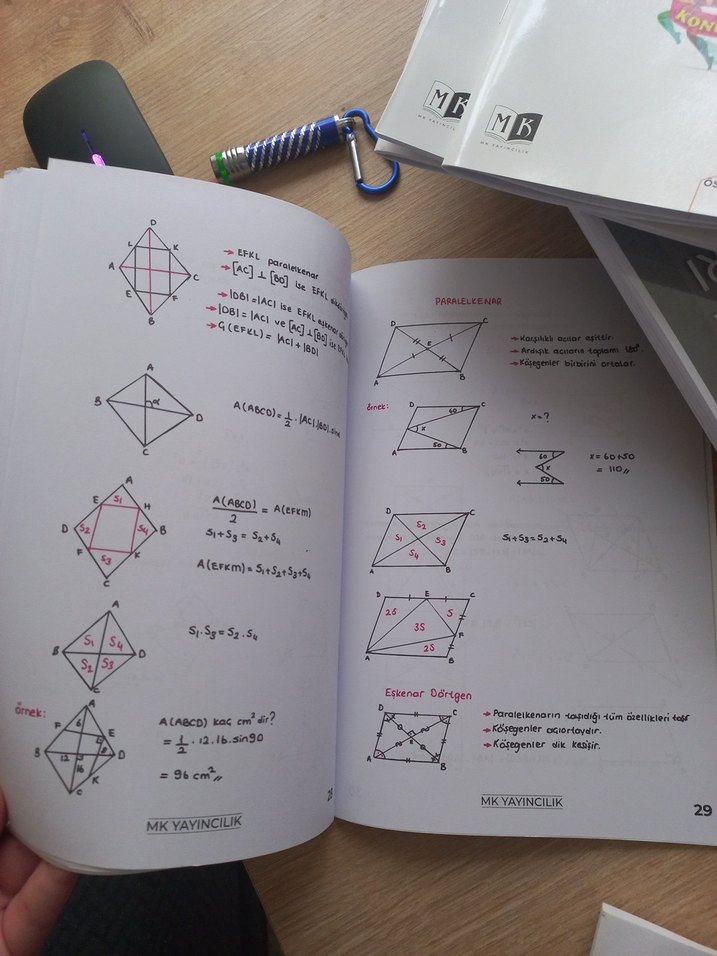 MK
MK YAYINCILIK
MK
MK YAYINCILIK
KONU
D
L
K
A
C
E
F
B
→ EFKL paralelkenar
→ [AC] ⊥ [BD] ise EFKL
→ |DB|=|AC| ise EFKL eşkenar
→ |DB|=|AC| ve [AC] ⊥ [BD] ise
→ Ç(EFKL) = |AC|+|BD|
A
B
α
D
C
A(ABCD)=1/2 . |AC|.|BD|.sinα
A
E
S1
H
D
S2
S4
B
F
S3
K
C
A(ABCD)/2 = A(EFKM)
S1+S3 = S2+S4
A(EFKM)=S1+S2+S3+S4
A
S1
S4
B
D
S2
S3
C
S1.S3=S2.S4
örnek:
A
F
6
E
B
12
8
D
16
K
C
A(ABCD) kaç cm² dir?
= 1/2 . 12.16.sin90
= 96 cm²//
MK YAYINCILIK
PARALELKENAR
D
C
E
A
B
→ Karşılıklı açılar eşittir.
→ Ardışık açıların toplamı 180°.
→ Köşegenler birbirini ortalar.
örnek:
D
60
C
x
50
A
B
x=?
60
x
50
x=60+50
= 110//
D
C
S2
S1
S3
S4
A
B
S1+S3=S2+S4
D
E
C
2S
S
3S
F
2S
A
B
Eşkenar Dörtgen
D
C
E
A
B
→ Paralelkenarın taşıdığı tüm özellikleri taşır
→ Köşegenler açıortaydır.
→ Köşegenler dik kesişir.
MK YAYINCILIK
29